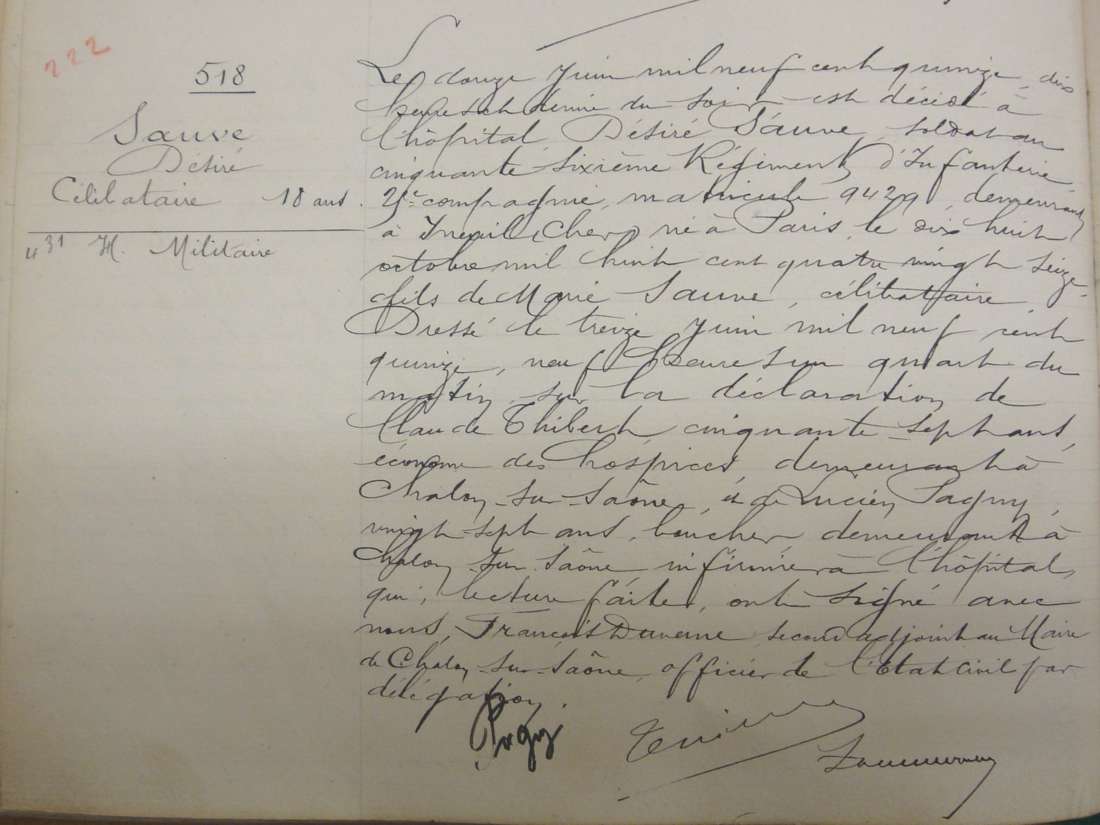 222
518
Sauve
Désiré
Célibataire 18 ans.
431 H. Militaire
Le douze Juin mil neuf cent quinze, dix
heures et demie du soir est décédé à
l'hôpital Désiré Sauve, soldat au
cinquante sixième Régiment d'Infanterie
25e compagnie, matricule 9429, demeurant
à Ineuil (Cher) né à Paris, le dix huit
octobre mil huit cent quatre vingt seize
fils de Marie Sauve, célibataire.
Dressé le treize Juin mil neuf cent
quinze, neuf heures un quart du
matin, sur la déclaration de
Claude Thibert, cinquante-sept ans,
économe des hospices, demeurant à
Chalon-sur-Saône, et de Lucien Pagny,
vingt-sept ans, boucher, demeurant à
Chalon-sur-Saône infirmier à l'hôpital,
qui, lecture faite, ont signé avec
nous, François Duverne second adjoint au Maire
de Chalon-sur-Saône, officier de l'Etat civil par
délégation.
Pagny